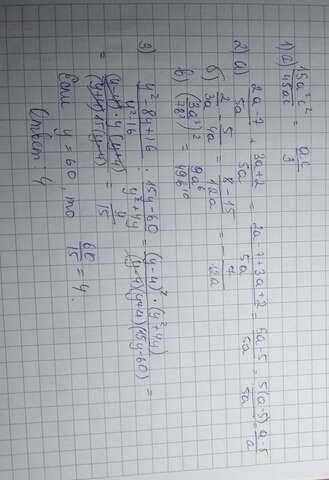 1) a) 15a²c²/45ac = ac/3
2) a) (2a-7)/5a + (3a+2)/5a = (2a-7+3a+2)/5a = (5a-5)/5a = 5(a-5)/5a = (a-5)/a
б) 2/3a - 5/4a = (8-15)/12a = -7/12a
в) (3a³/7b⁵)² = 9a⁶/49b¹⁰
3) (y²-8y+16)/(y²-16) : (15y-60)/(y²+4y) = (y-4)²·(y²+4y)/(y-4)(y+4)(15y-60) =
= (y-4)·y(y+4)/(y+4)15(y-4) = y/15
Если y = 60, то 60/15 = 4.
Ответ 4